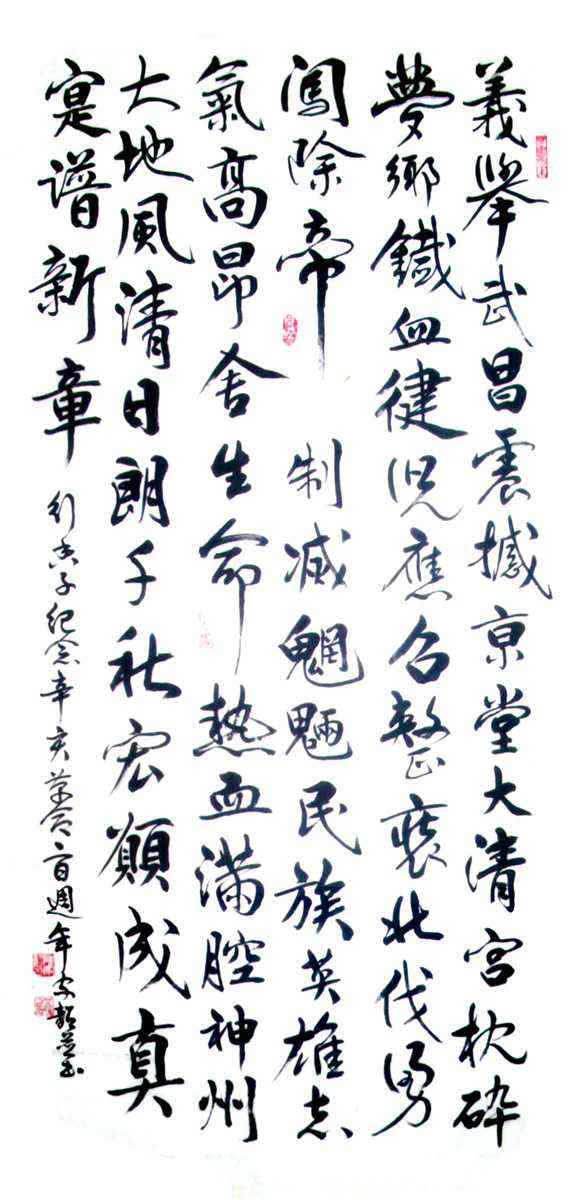 義舉武昌震撼京堂大清宮枕碎
夢鄉鐵血徤児應召整裝北伐勇
闖除帝制减魍魎民族英雄志
氣高昂舍生命熱血滿腔神州
大地風清日朗千秋宏願成真
寔譜新章
行香子紀念辛亥革命百週年